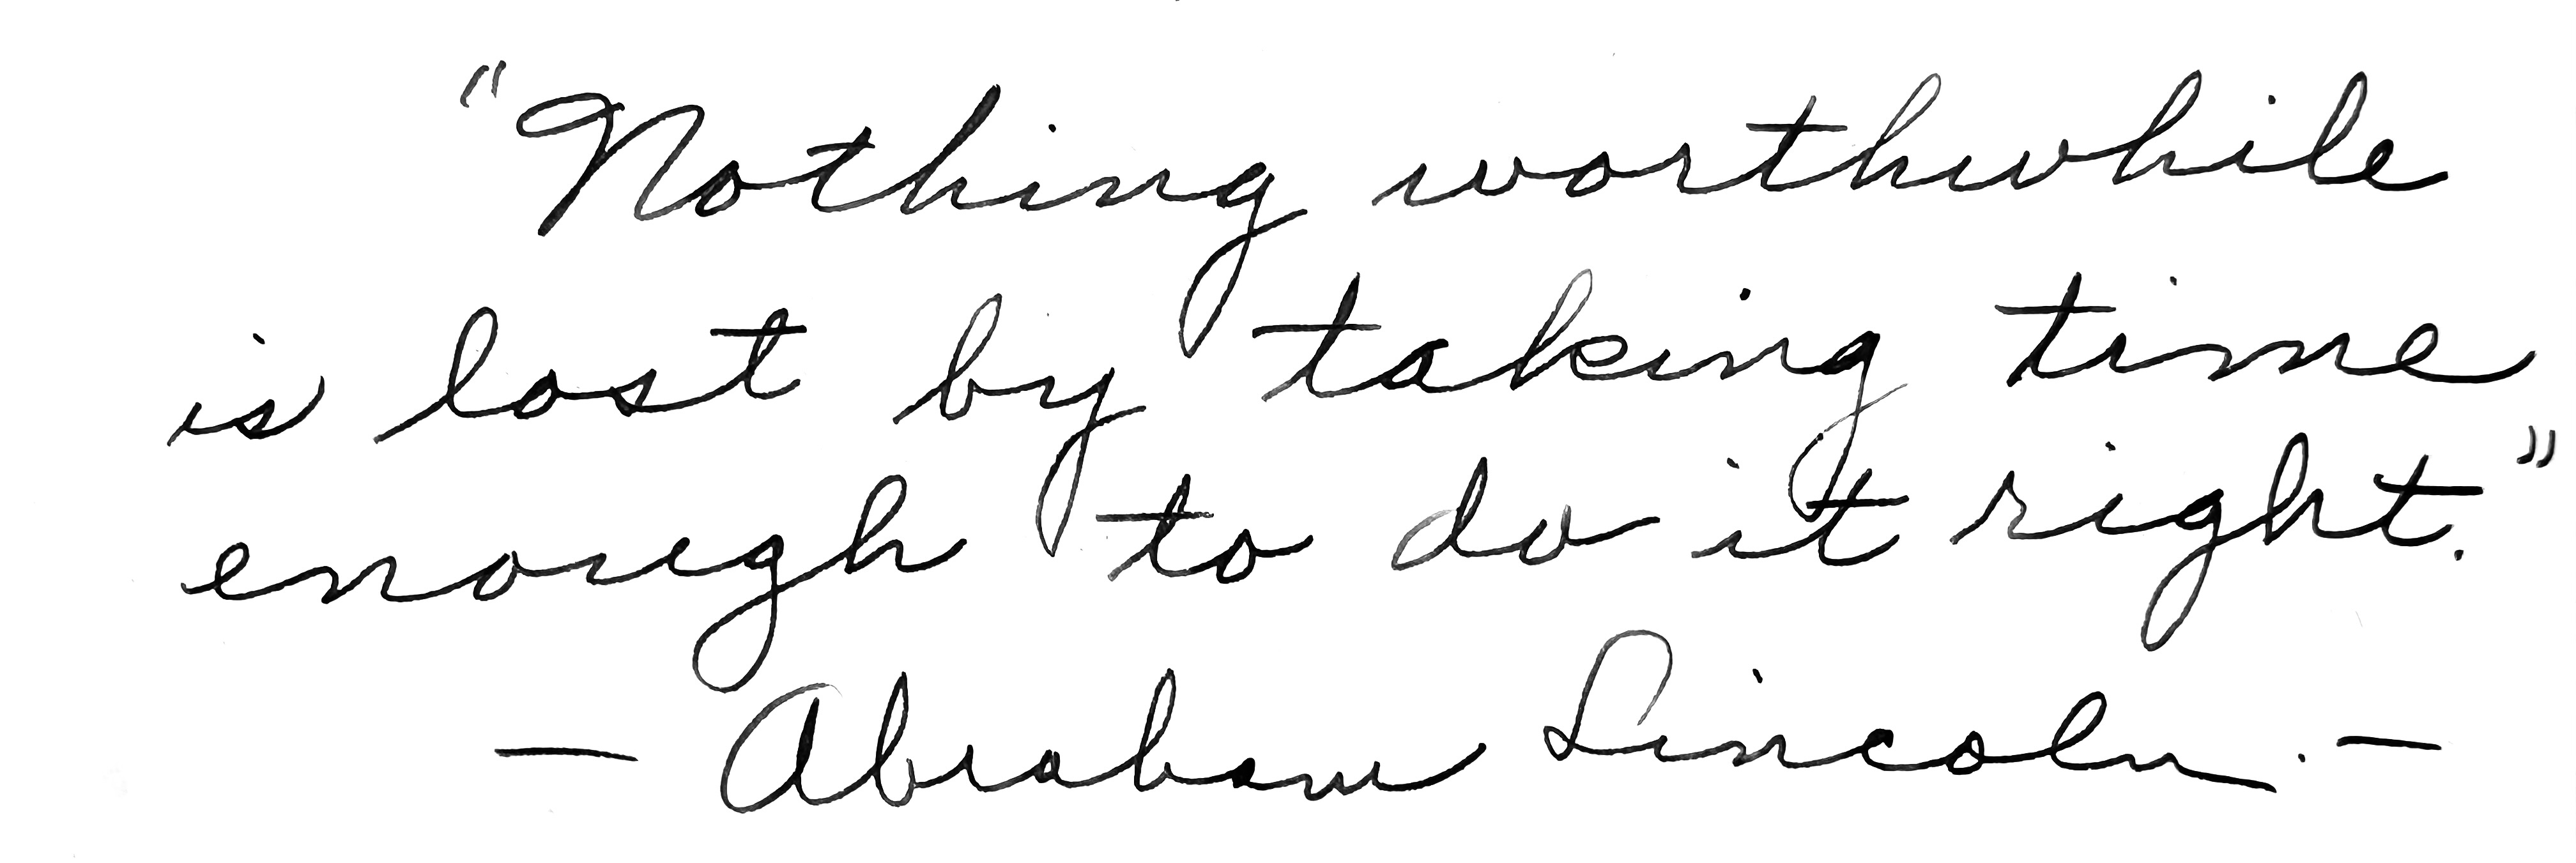 "Nothing worthwhile
is lost by taking time
enough to do it right."
— Abraham Lincoln. —